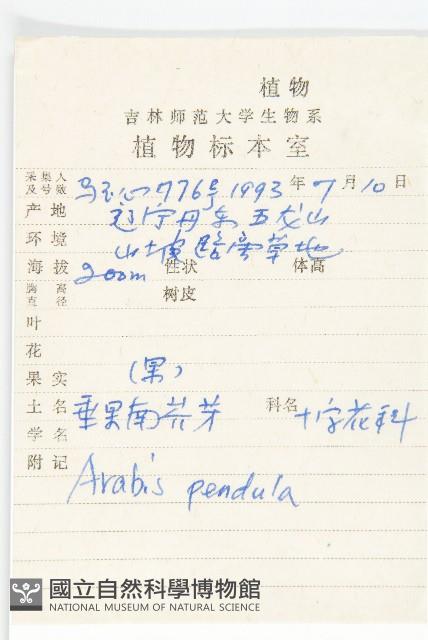 植物
吉林师范大学生物系
植物标本室
采集人及号数 马玉心 776号 1993年 7月 10日
产地 辽宁丹东五龙山
环境 山坡路旁草地
海拔 200m 性状 体高
胸高直径 树皮
叶
花
果实 (果)
土名 垂果南芥芽 科名 十字花科
学名
附记 Arabis pendula
國立自然科學博物館
NATIONAL MUSEUM OF NATURAL SCIENCE